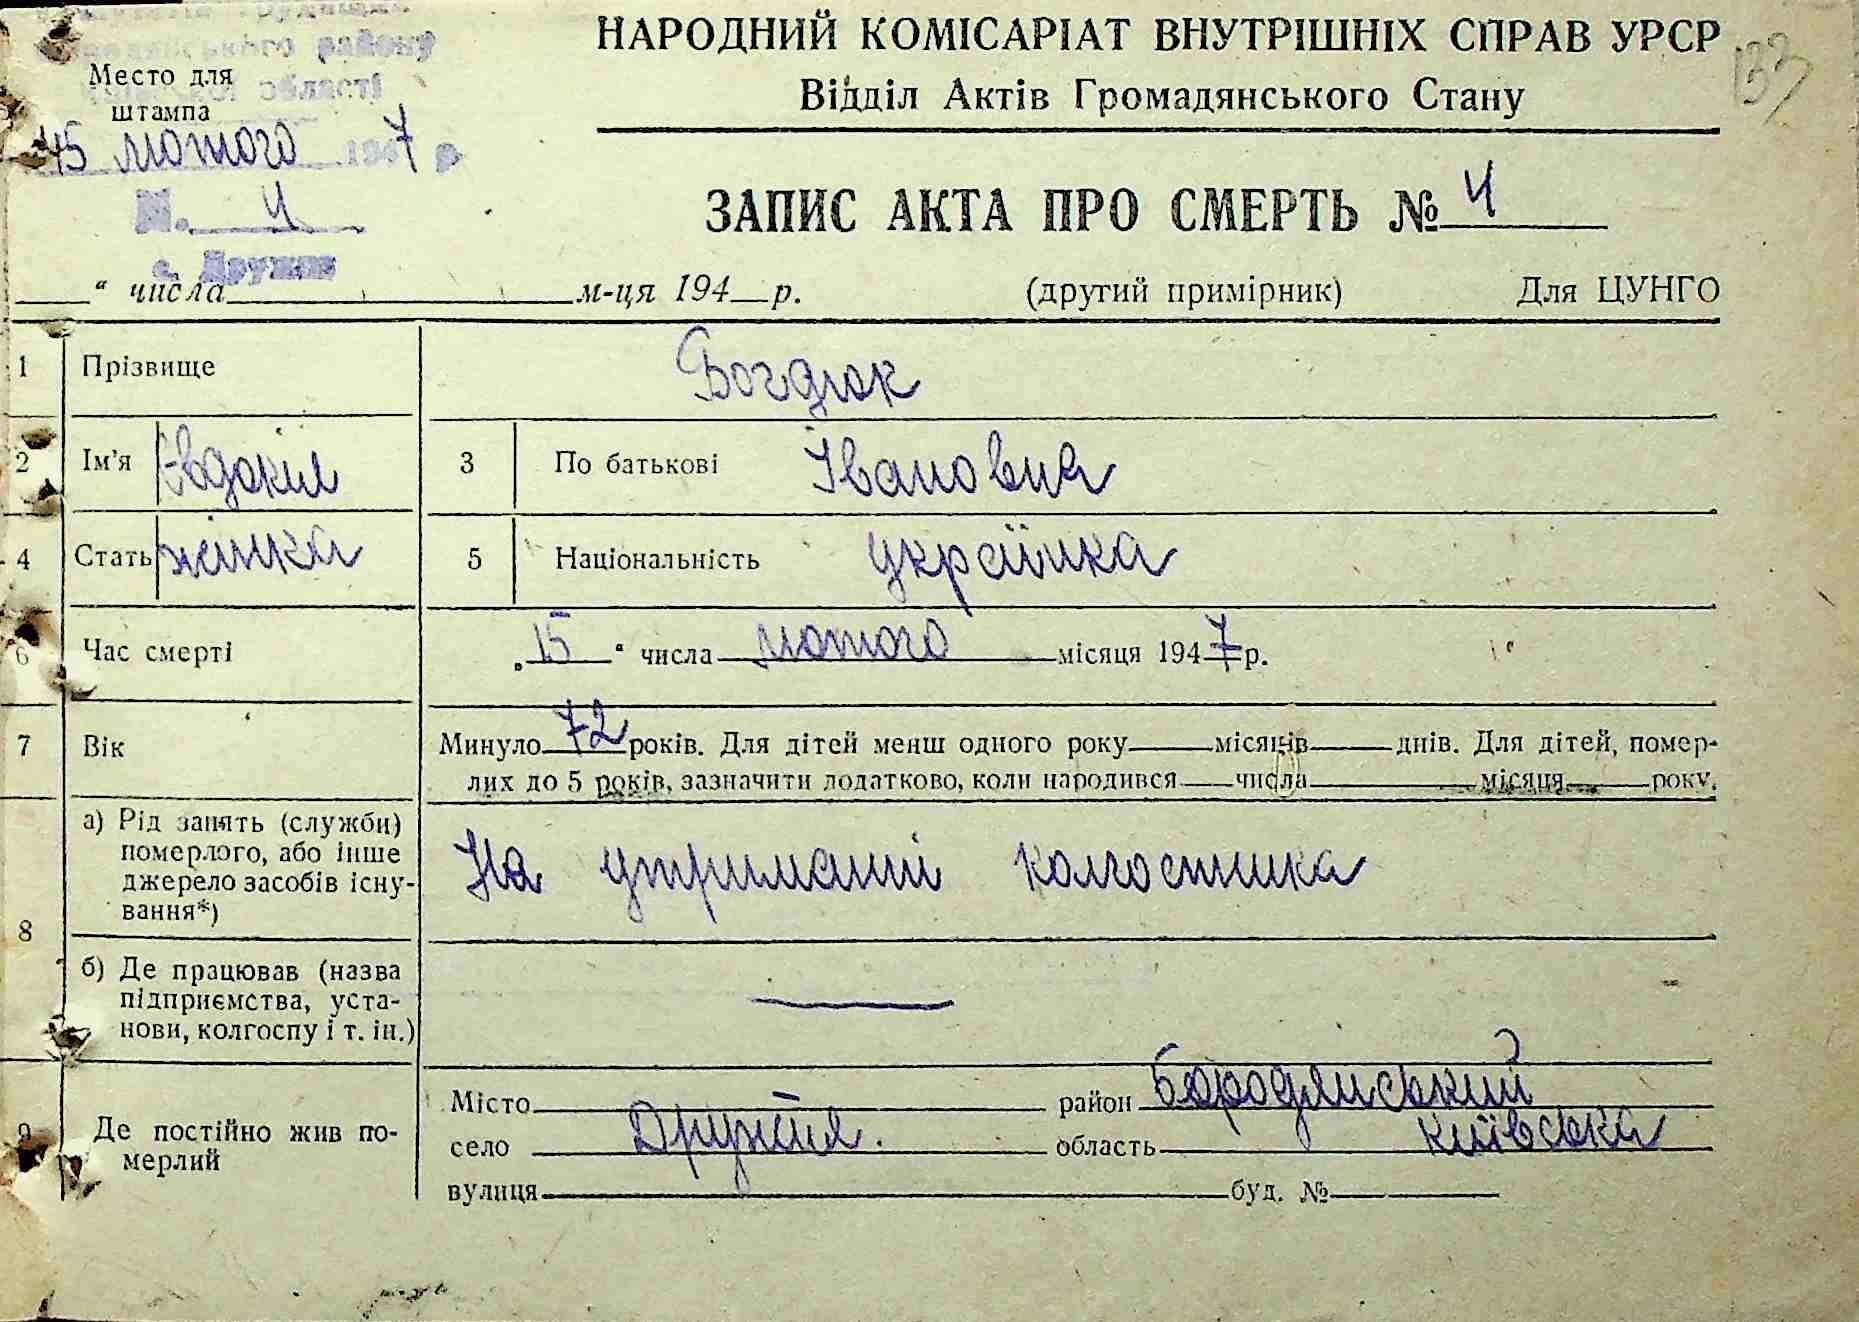 НАРОДНИЙ КОМІСАРІАТ ВНУТРІШНІХ СПРАВ УРСР
133
Відділ Актів Громадянського Стану
району
області
Место для
штампа
15 лютого 1947 р
N. 4
с. Дружня
ЗАПИС АКТА ПРО СМЕРТЬ № 4
“ числа м-ця 194 р. (другий примірник) Для ЦУНГО
1 Прізвище Богдюк
2 Ім'я Євдокія 3 По батькові Івановна
4 Стать жінка 5 Національність українка
6 Час смерті „15“ числа лютого місяця 1947 р.
7 Вік Минуло 72 років. Для дітей менш одного року місяців днів. Для дітей, помер-
лих до 5 років, зазначити додатково, коли народився числа місяця року.
8 а) Рід занять (служби)
померлого, або інше
джерело засобів існу-
вання*)
На утриманні колгоспника
б) Де працював (назва
підприємства, уста-
нови, колгоспу і т. ін.)
9 Де постійно жив по-
мерлий
Місто район Бородянський
село Дружня. область Київська
вулиця буд. №